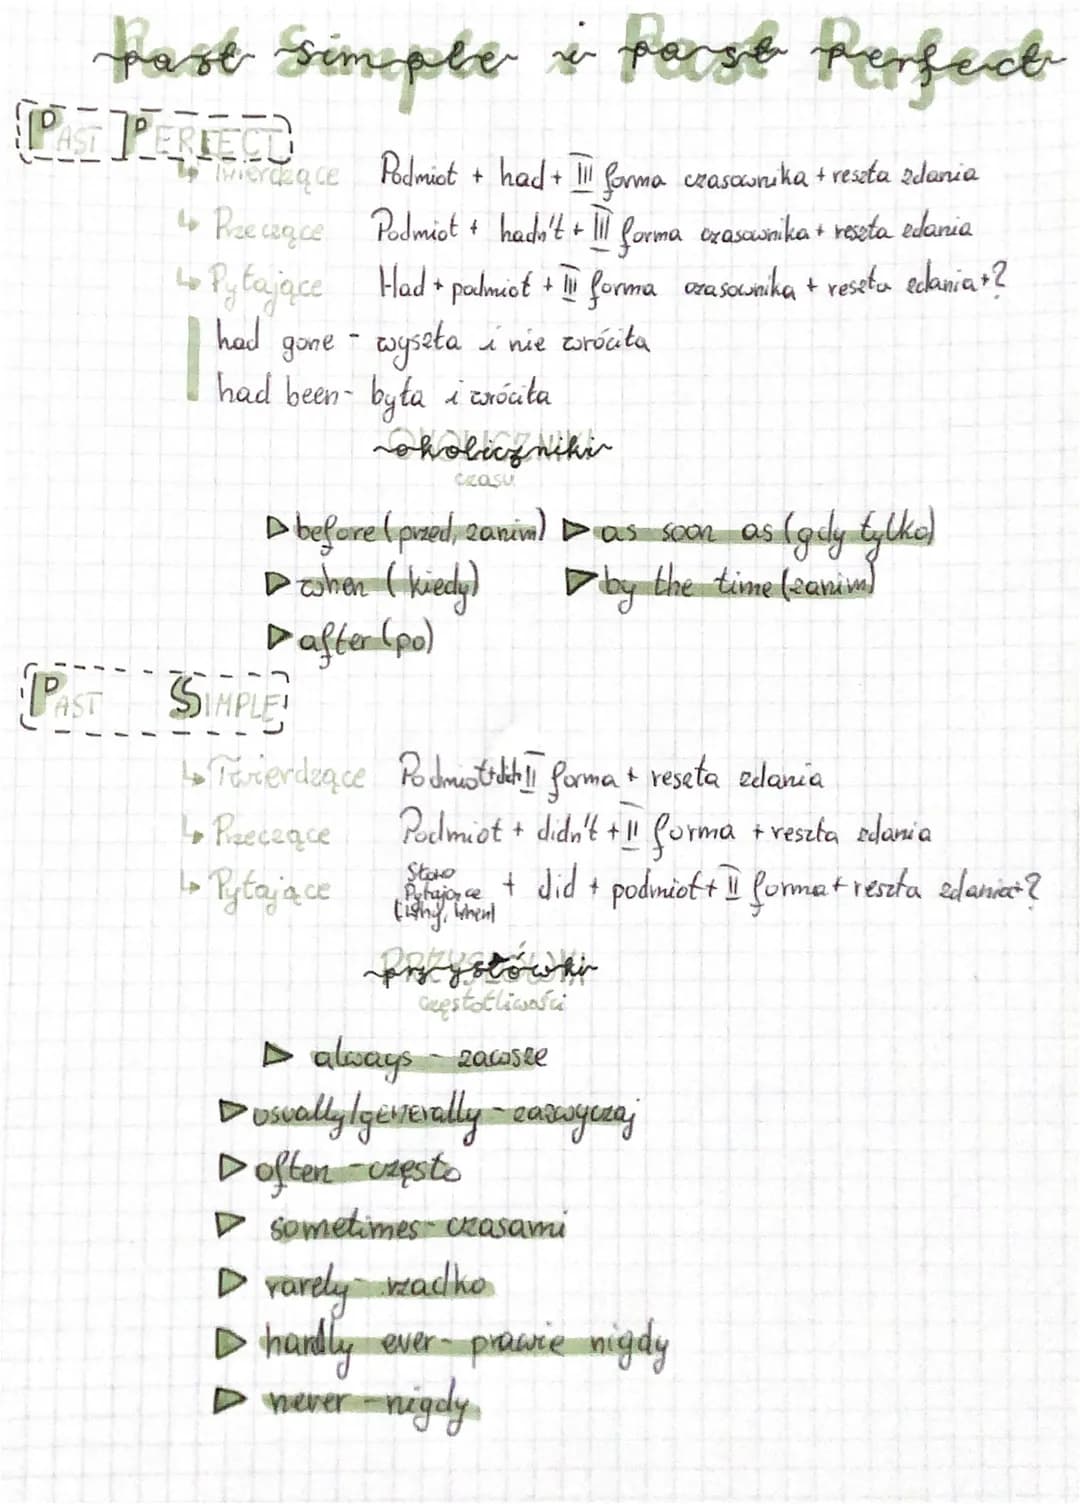 past simple i past Perfect
PAST PERFECT
↳ Twierdzące Podmiot + had + III forma czasownika + reszta zdania
↳ Przeczące Podmiot + hadn't + III forma czasownika + reszta zdania
↳ Pytające Had + podmiot + III forma czasownika + reszta zdania + ?
had gone - wyszła i nie wróciła
had been - była i wróciła
okoliczniki
czasu
▷ before (przed, zanim) ▷ as soon as (gdy tylko)
▷ when (kiedy) ▷ by the time (zanim)
▷ after (po)
PAST SIMPLE
↳ Twierdzące Podmiot + II forma + reszta zdania
↳ Przeczące Podmiot + didn't + II forma + reszta zdania
↳ Pytające Słowo Pytające (why, when) + did + podmiot + II forma + reszta zdania + ?
przysłówki
częstotliwości
▷ always - zawsze
▷ usually/generally - zazwyczaj
▷ often - często
▷ sometimes - czasami
▷ rarely - rzadko
▷ hardly ever - prawie nigdy
▷ never - nigdy